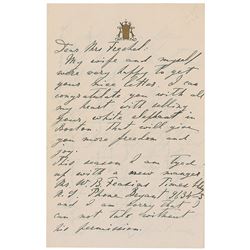 Dear Mrs
My wife and myself
were very happy to get
your nice letter. I can
congratulate you with all
my heart with selling
your, white elephant in
Boston. That will give
you more freedom and
joy.
This season I am tyed
up with a new manager,
Mr W. B. Times
N.Y. Phone Bryant
and I am sorry that I
can not do without
his permission.